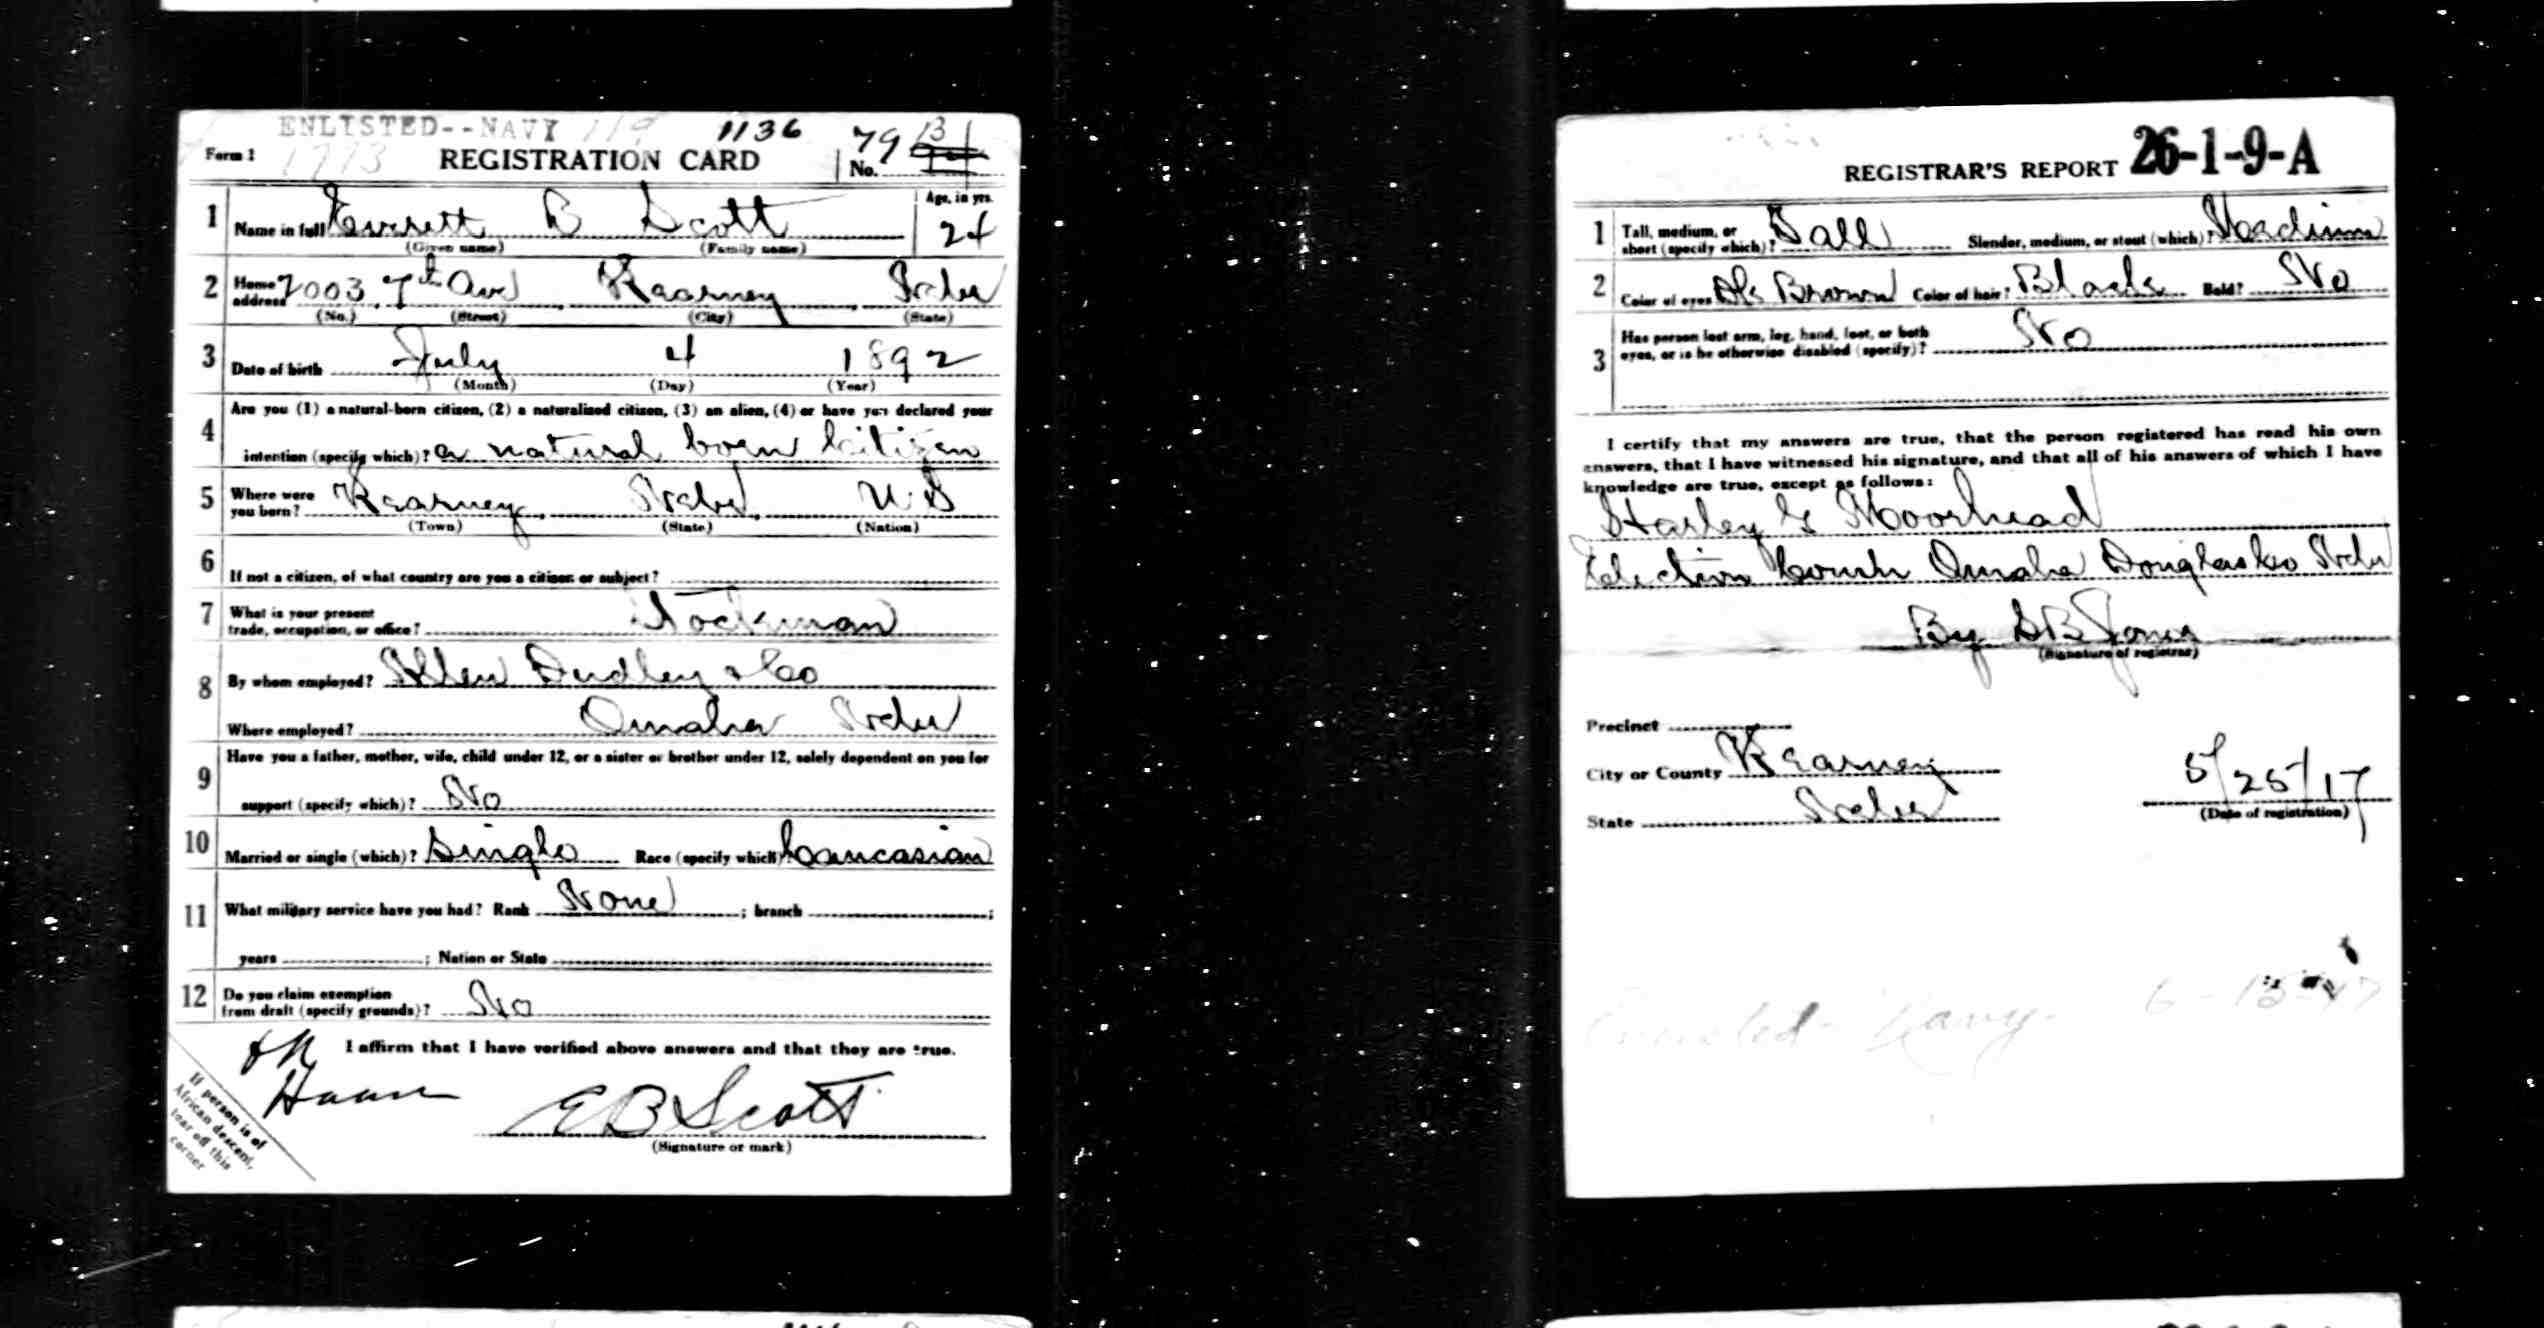 ENLISTED--NAVY 119 1136 79 13
Form 1 1773 REGISTRATION CARD No.
1 Name in full Everett B Scott Age, in yrs. 24
(Given name) (Family name)
2 Home address 2003 7th Ave Kearney Nebr
(No.) (Street) (City) (State)
3 Date of birth July 4 1892
(Month) (Day) (Year)
4 Are you (1) a natural-born citizen, (2) a naturalized citizen, (3) an alien, (4) or have you declared your
intention (specify which)? a natural born citizen
5 Where were you born? Kearney Nebr U.S
(Town) (State) (Nation)
6 If not a citizen, of what country are you a citizen or subject?
7 What is your present
trade, occupation, or office? Stockman
8 By whom employed? Allen Dudley & Co
Where employed? Omaha Nebr
9 Have you a father, mother, wife, child under 12, or a sister or brother under 12, solely dependent on you for
support (specify which)? No
10 Married or single (which)? Single Race (specify which)? Caucasian
11 What military service have you had? Rank None ; branch ;
years ; Nation or State
12 Do you claim exemption
from draft (specify grounds)? No
I affirm that I have verified above answers and that they are true.
E B Scott
(Signature or mark)
If person is of
African descent,
tear off this
corner
REGISTRAR'S REPORT 26-1-9-A
1 Tall, medium, or
short (specify which)? Tall Slender, medium, or stout (which)? Medium
2 Color of eyes Dk Brown Color of hair? Black Bald? No
3 Has person lost arm, leg, hand, foot, or both
eyes, or is he otherwise disabled (specify)? No
I certify that my answers are true, that the person registered has read his own
answers, that I have witnessed his signature, and that all of his answers of which I have
knowledge are true, except as follows:
Harley G Moorhead
Election Comr Omaha Douglas Co Nebr
By S B Jones
(Signature of registrar)
Precinct
City or County Kearney
State Nebr
5/25/17
(Date of registration)
Enlisted - Navy - 6-15-17